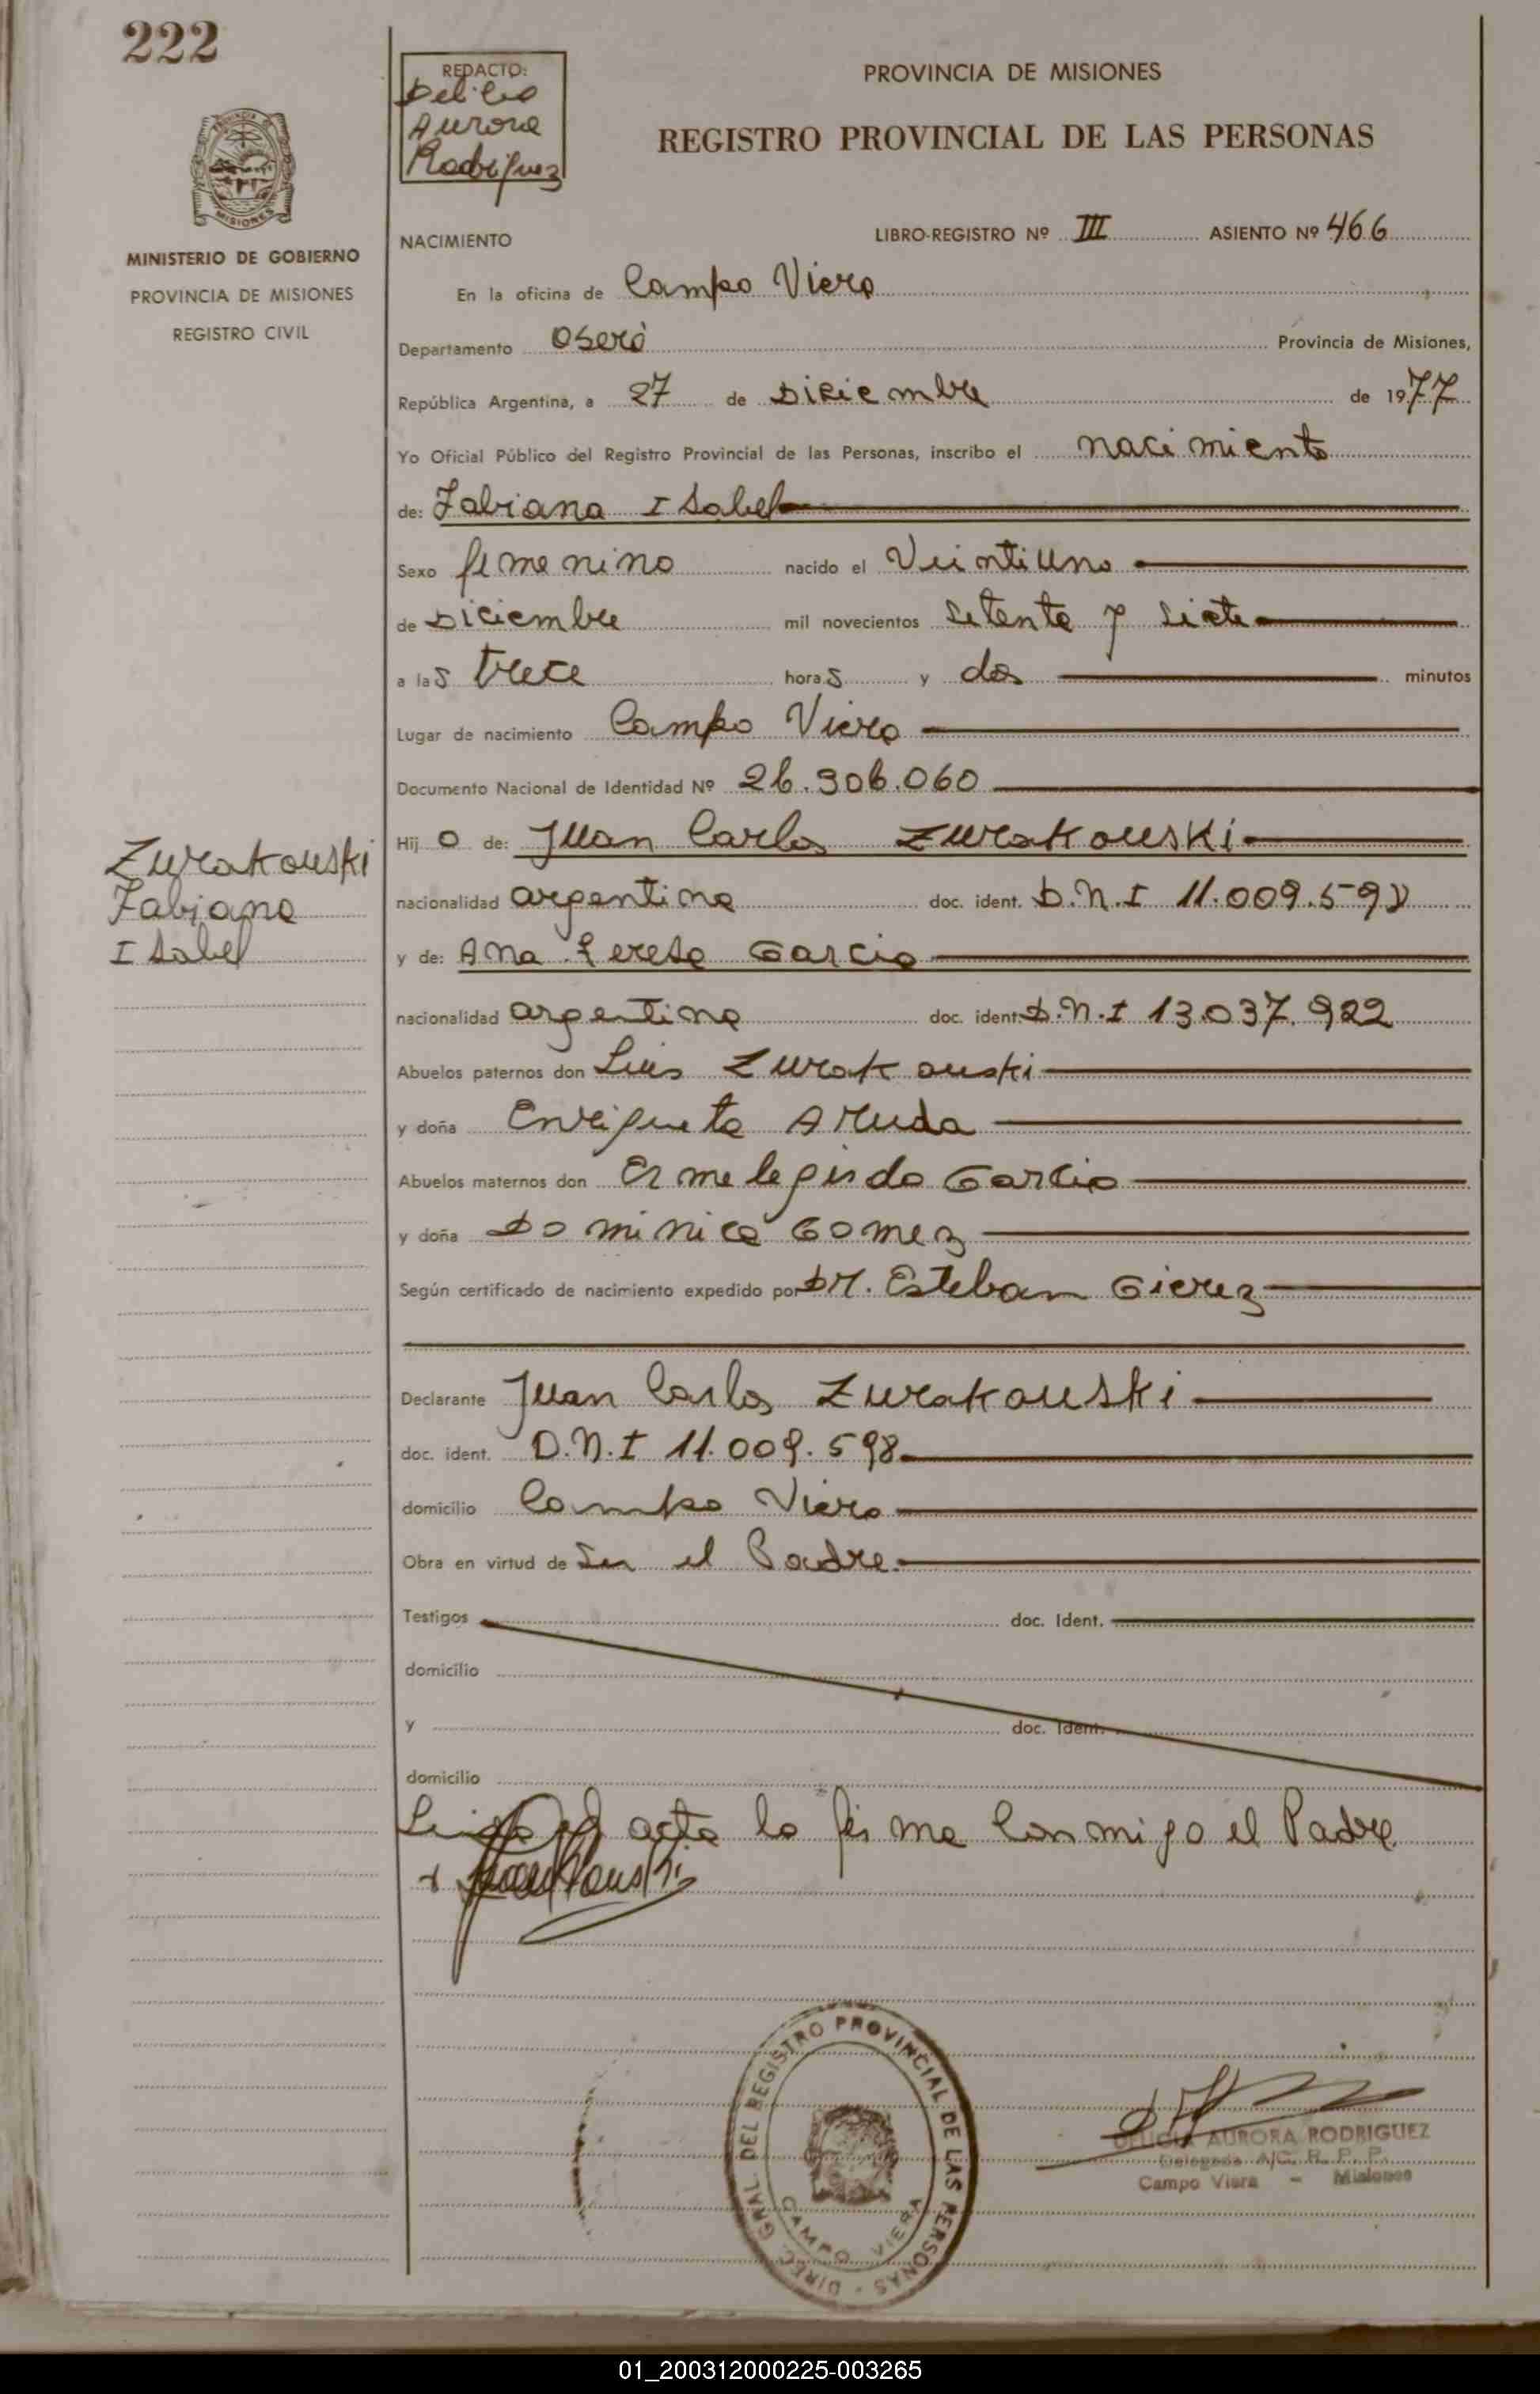 222
REDACTO:
Delicia
Aurora
Rodriguez
PROVINCIA DE MISIONES
REGISTRO PROVINCIAL DE LAS PERSONAS
MISIONES
MINISTERIO DE GOBIERNO
PROVINCIA DE MISIONES
REGISTRO CIVIL
NACIMIENTO LIBRO-REGISTRO Nº III ASIENTO Nº 466
En la oficina de Campo Viera
Departamento Oberá Provincia de Misiones,
República Argentina, a 27 de Diciembre de 1977
Yo Oficial Público del Registro Provincial de las Personas, inscribo el nacimiento
de: Fabiana Isabel
Sexo femenino nacido el Veintiuno
de Diciembre mil novecientos setenta y siete
a las trece horas y dos minutos
Lugar de nacimiento Campo Viera
Documento Nacional de Identidad Nº 26.306.060
Hijo de: Juan Carlos Zurakouski
Zurakouski
Fabiana
Isabel
nacionalidad argentina doc. ident. D.N.I 11.009.598
y de: Ana Teresa Garcia
nacionalidad argentina doc. ident. D.N.I 13.037.922
Abuelos paternos don Luis Zurakouski
y doña Enriqueta Aruda
Abuelos maternos don Ermelegildo Garcia
y doña Dominica Gomez
Según certificado de nacimiento expedido por Dr. Esteban Gierez
Declarante Juan Carlos Zurakouski
doc. ident. D.N.I 11.009.598
domicilio Campo Viera
Obra en virtud de Ser el Padre
Testigos doc. Ident.
domicilio
y doc. Ident.
domicilio
Leida el acta la firma conmigo el Padre
DIREC. GRAL. DEL REGISTRO PROVINCIAL DE LAS PERSONAS
CAMPO VIERA
DELICIA AURORA RODRIGUEZ
Delegada A/C. R. P. P.
Campo Viera - Misiones
01_200312000225-003265